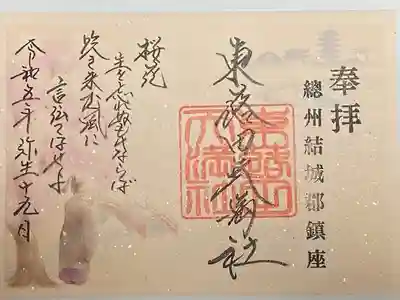 奉拝
總州結城郡鎮座
東蕗田天満社
東蕗田
天満社
桜花
主を忘れぬものならば
吹き来む風に
言伝てはせよ
令和五年 弥生十九日